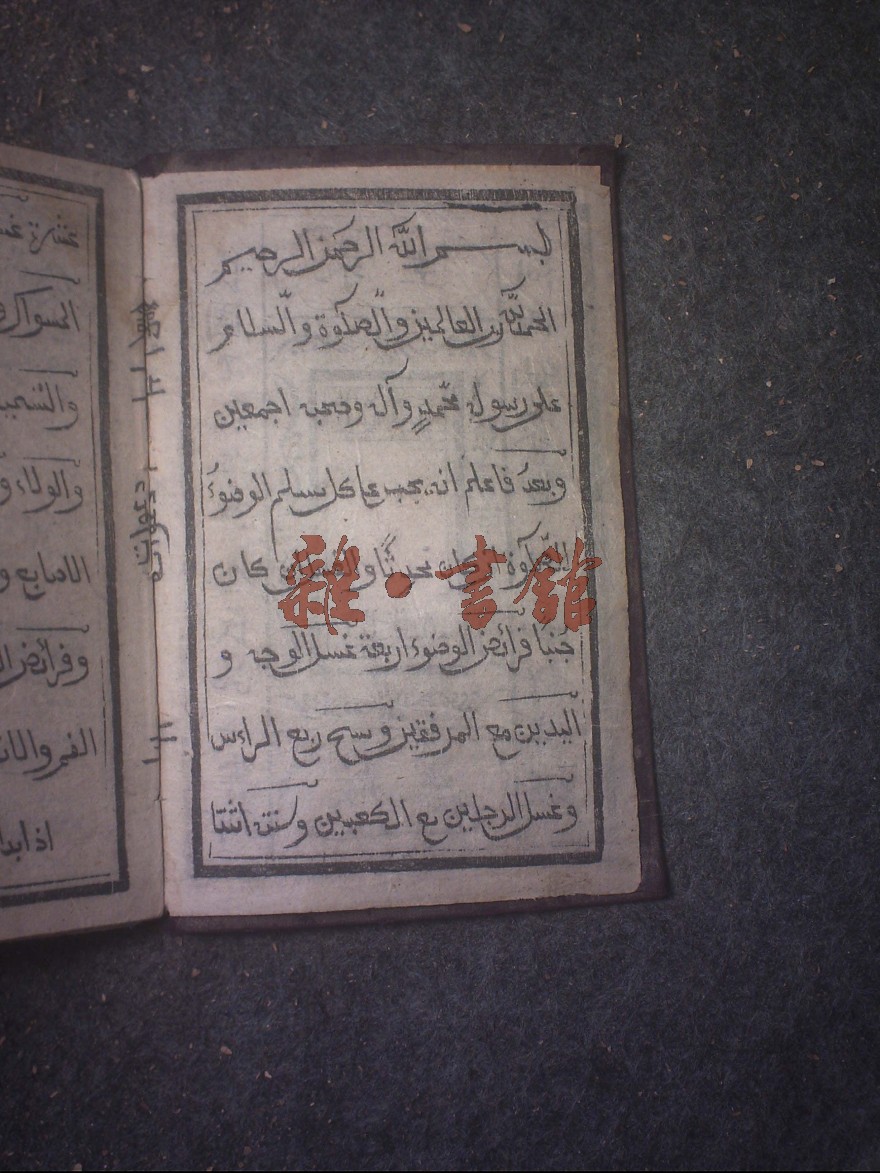 بسم الله الرحمن الرحيم
الحمد لله رب العالمين والصلوة والسلام
على رسوله محمد وآله وصحبه اجمعين
وبعد فاعلم انه يجب على كل مسلم الوضوء
كان محدثا كان
جنبا فرائض الوضوء اربعة غسل الوجه و
اليدين مع المرفقين ومسح ربع الراس
وغسل الرجلين مع الكعبين وسننه اثنتا
دعوات
عشرة
المسواك
والولاء و
الاصابع و
وفرائض
الفم
اذا ابدا
雜·書館